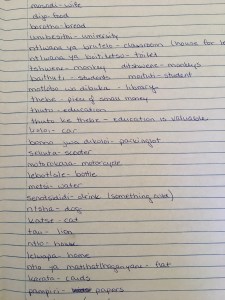 mosadi - wife
dijo - food
borotho - bread
unibesithi - university
ntlwana ya borutelo - classroom (house for le
ntlwana ya boitiketso - toilet
tshwene - monkey ditshwene - monkeys
baithuti - students moithuti - student
motlobo wa dibuka - library
thebe - piece of small money
thuto - education
thuto ke thebe - education is valuable
koloi - car
boema gwa dikoloi - parkinglot
sekuta - scooter
motorokara - motorcycle
lebotlele - bottle
metsi - water
senotsididi - drink (something cold)
ntsha - dog
katse - cat
tau - lion
ntlo - house
lelwapa - home
ntlo ya matshatlhaganyane - flat
karata - cards
pampiri - papers